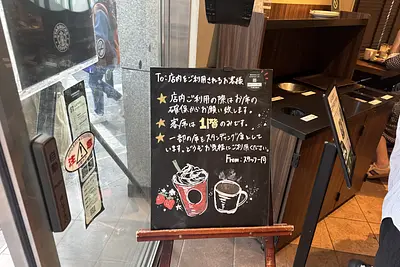 To:店内をご利用されるお客様
★店内ご利用の際はお席の
確保からお願い致します。
★客席は1階のみです。
★一部の席をスタンディング席として
います。どうぞお気軽にご利用ください。
From:スタッフ一同
注意